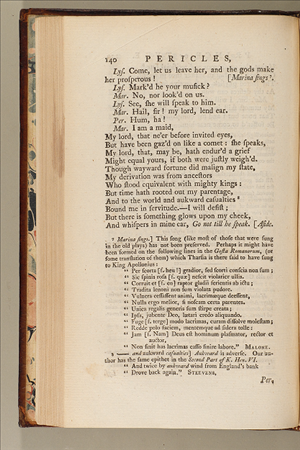 140 PERICLES,
Lys. Come, let us leave her, and the gods make
her prosp'rous! [Marina sings ⁷.
Lys. Mark'd he your musick?
Mar. No, nor look'd on us.
Lys. See, she will speak to him.
Mar. Hail, sir! my lord, lend ear.
Per. Hum, ha!
Mar. I am a maid,
My lord, that ne'er before invited eyes,
But have been gaz'd on like a comet: she speaks,
My lord, that, may be, hath endur'd a grief
Might equal yours, if both were justly weigh'd.
Though wayward fortune did malign my state,
My derivation was from ancestors
Who stood equivalent with mighty kings:
But time hath rooted out my parentage,
And to the world and aukward casualties ⁸
Bound me in servitude.—I will desist;
But there is something glows upon my cheek,
And whispers in mine ear, Go not till he speak. [Aside.
⁷ Marina sings.] This song (like most of those that were sung
in the old plays) has not been preserved. Perhaps it might have
been formed on the following lines in the Gesta Romanorum, (or
some translation of them) which Tharsia is there said to have sung
to King Apollonius:
" Per scorta [f. heu!] gradior, sed scorti conscia non sum;
" Sic spinis rosa [f. quæ] nescit violarier ullis.
" Corruit et [f. en] raptor gladii ferientis ab ictu;
" Tradita lenoni non sum violata pudore.
" Vulnera cessissent animi, lacrimæque deessent,
" Nulla ergo melior, si noscam certa parentes.
" Unica regalis generis sum stirpe creata;
" Ipsa, jubente Deo, lætari credo aliquando.
" Fuge [f. terge] modo lacrimas, curam dissolve molestam;
" Redde polo faciem, mentemque ad sidera tolle:
" Jam [f. Nam] Deus est hominum plasmator, rector et
auctor,
" Non sinit has lacrimas casso finire labore." MALONE.
⁸ — and aukward casualties] Aukward is adverse. Our au-
thor has the same epithet in the Second Part of K. Hen. VI.
" And twice by aukward wind from England's bank
" Drove back again." STEEVENS.
Per.